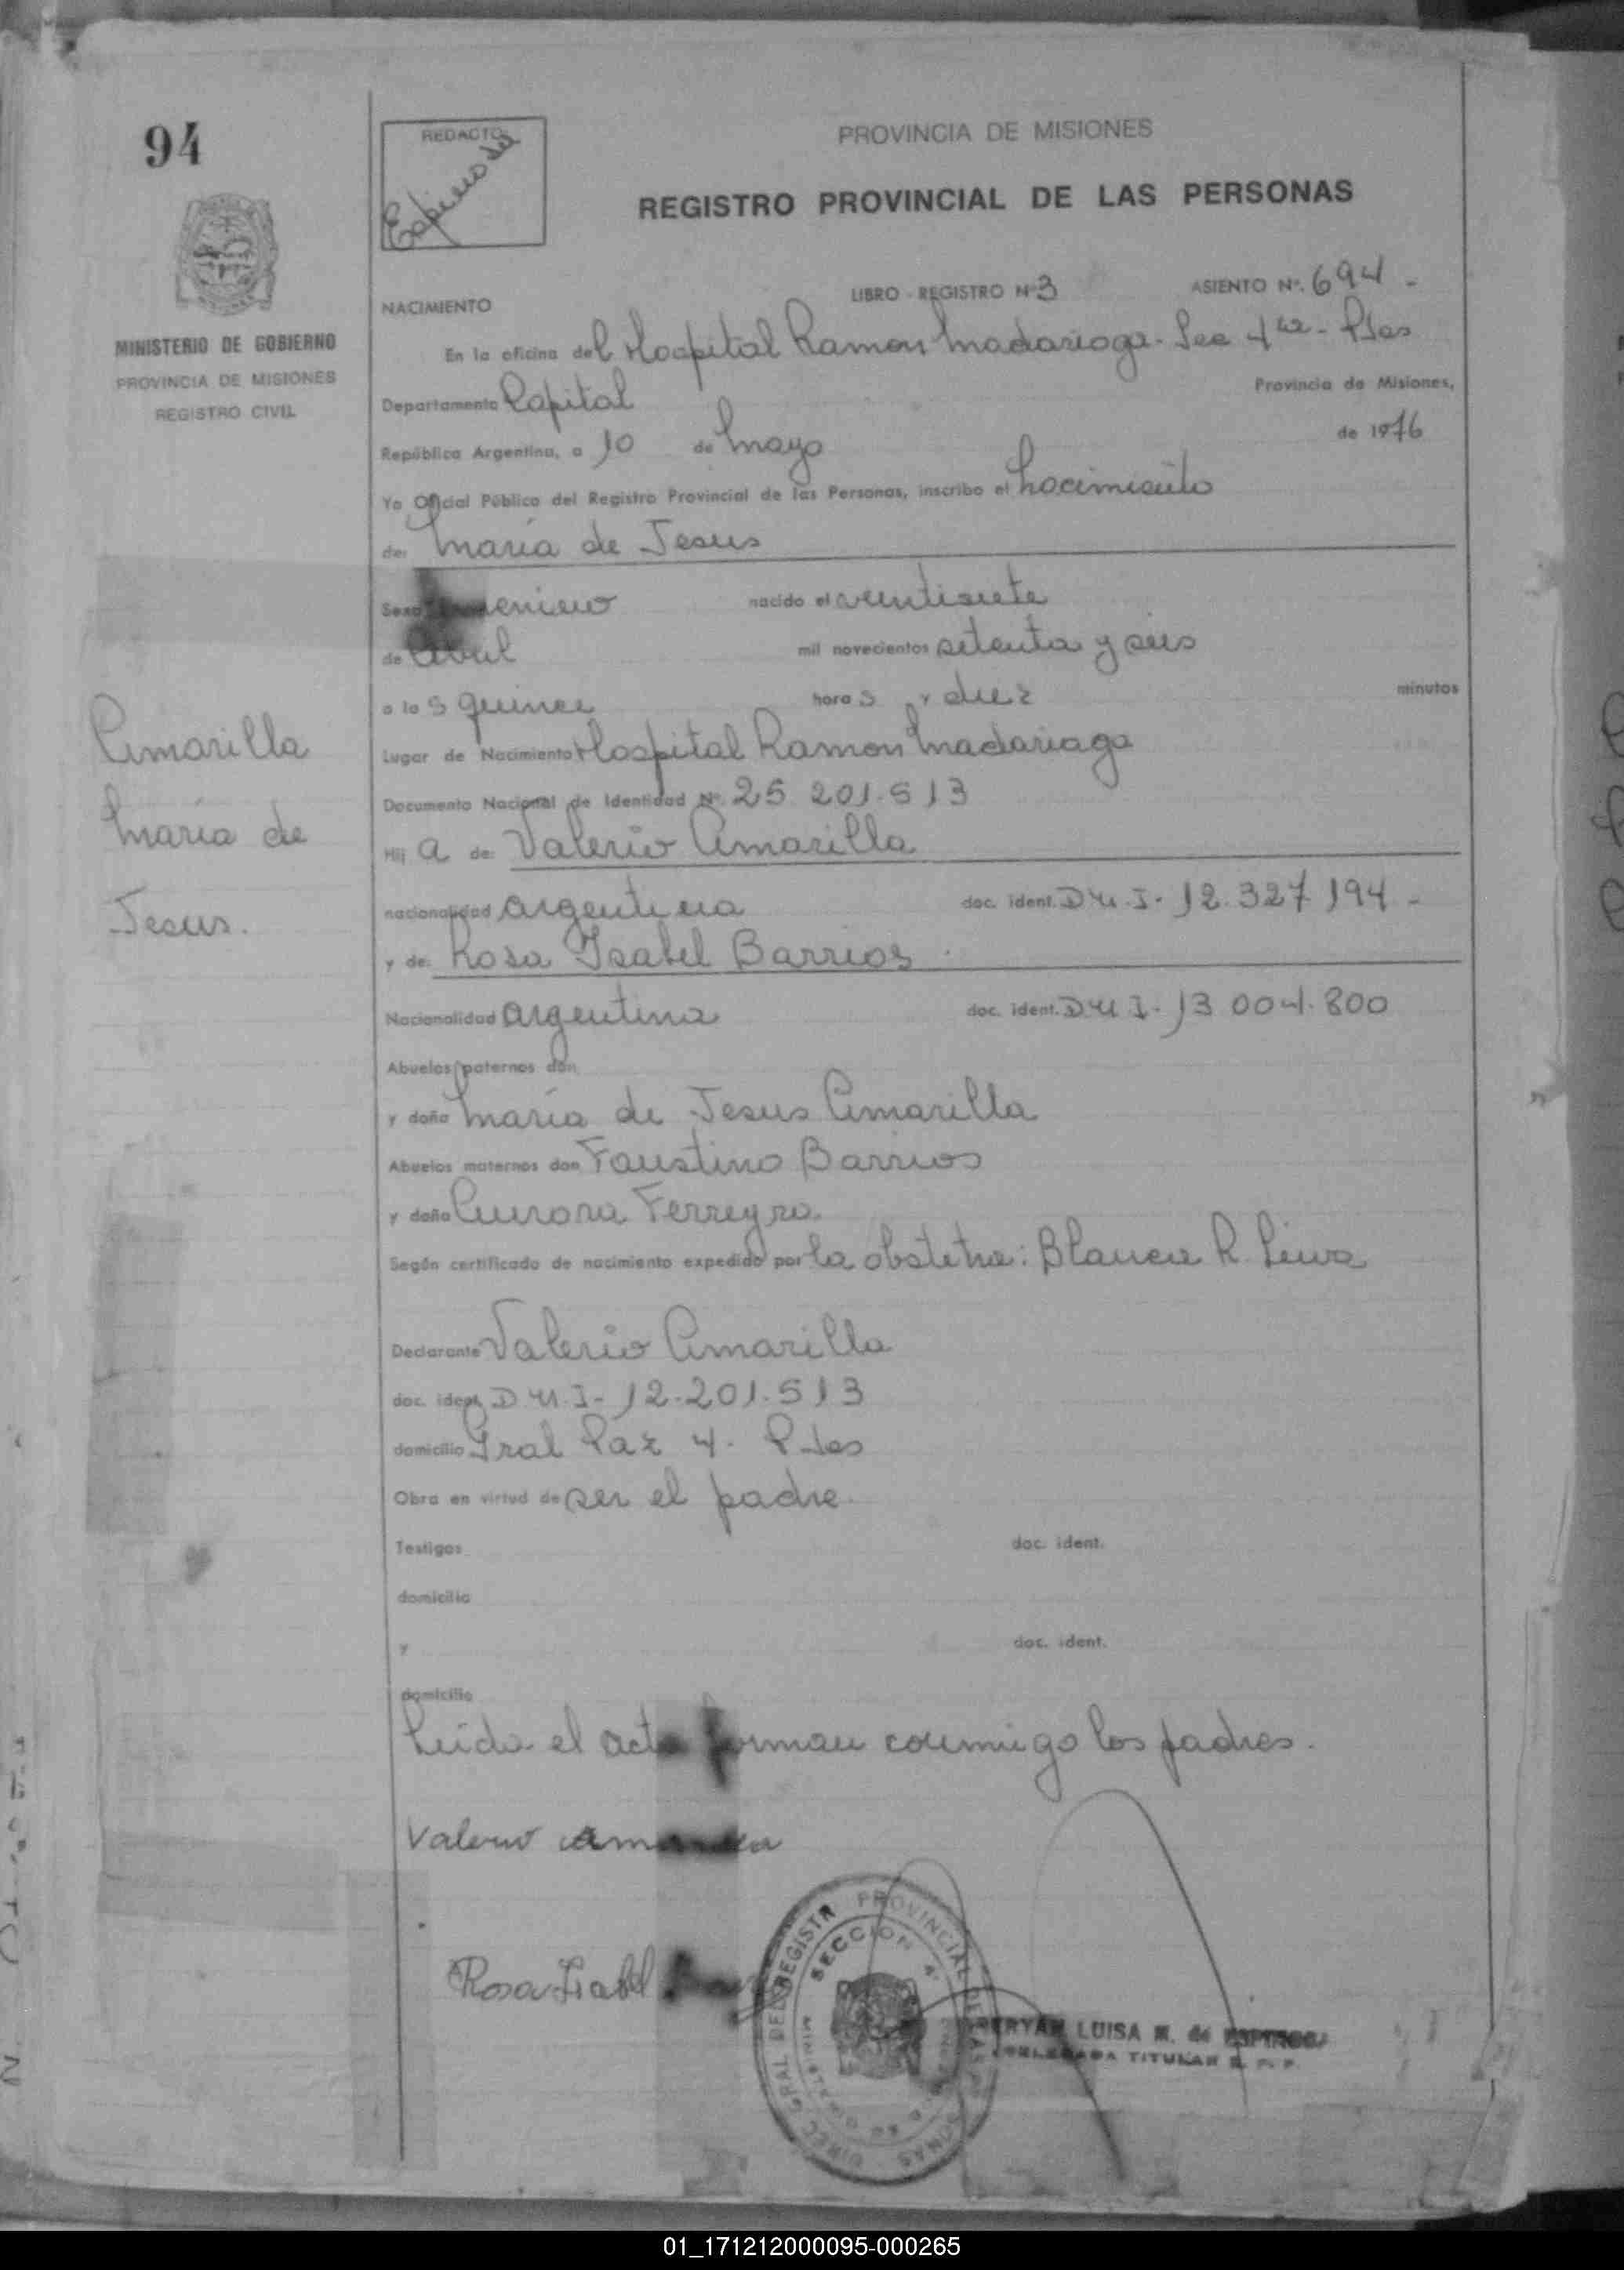 94
REDACTO
Espinosa
PROVINCIA DE MISIONES
REGISTRO PROVINCIAL DE LAS PERSONAS
MINISTERIO DE GOBIERNO
PROVINCIA DE MISIONES
REGISTRO CIVIL
NACIMIENTO LIBRO - REGISTRO Nº 3 ASIENTO Nº. 694 -
En la oficina del Hospital Ramon Madariaga - Sec 4ta - Pdas
Departamento Capital Provincia de Misiones,
República Argentina, a 10 de Mayo de 1976
Yo Oficial Público del Registro Provincial de las Personas, inscribo el nacimiento
de: María de Jesus
Sexo femenino nacido el veintisiete
de abril mil novecientos setenta y seis
a las quince horas y diez minutos
Lugar de Nacimiento Hospital Ramon Madariaga
Documento Nacional de Identidad Nº. 25 201.513
Hija de: Valerio Amarilla
nacionalidad argentina doc. ident. D.N.I- 12.327 194 -
y de: Rosa Isabel Barrios
Nacionalidad argentina doc. ident. D N I- 13 004.800
Abuelos paternos don
y doña María de Jesus Amarilla
Abuelos maternos don Faustino Barrios
y doña Aurora Ferreyra
Según certificado de nacimiento expedido por la obstetra: Blanca R. Leiva
Declarante Valerio Amarilla
doc. ident. D N.I- 12.201.513
domicilio Gral Paz 4. Pdas
Obra en virtud de ser el padre.
Testigos doc. ident.
domicilio
y doc. ident.
domicilio
Leida el acta firman conmigo los padres.
Amarilla
María de
Jesus.
Valerio Amarilla
Rosa Isabel
DIREC. GRAL DEL REGISTR PROVINCIAL DE LAS PERSONAS
SECCION 4
LUISA M. de ESPINOSA
DELEGADA TITULAR R. P. P.
01_171212000095-000265